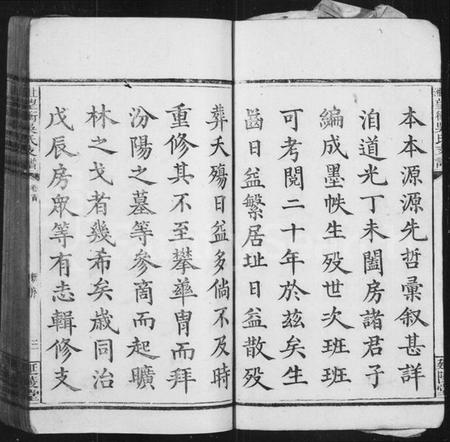 本本源源先哲彙叙甚詳
洎道光丁未闔房諸君子
編成墨帙生殁世次班班
可考閱二十年於兹矣生
齒日益繁居址日益散殁
葬夭殤日益多倘不及時
重修其不至攀華冑而拜
汾陽之墓等參商而起曠
林之戈者幾希矣歲同治
戊辰房眾等有志輯修支
卷首
三